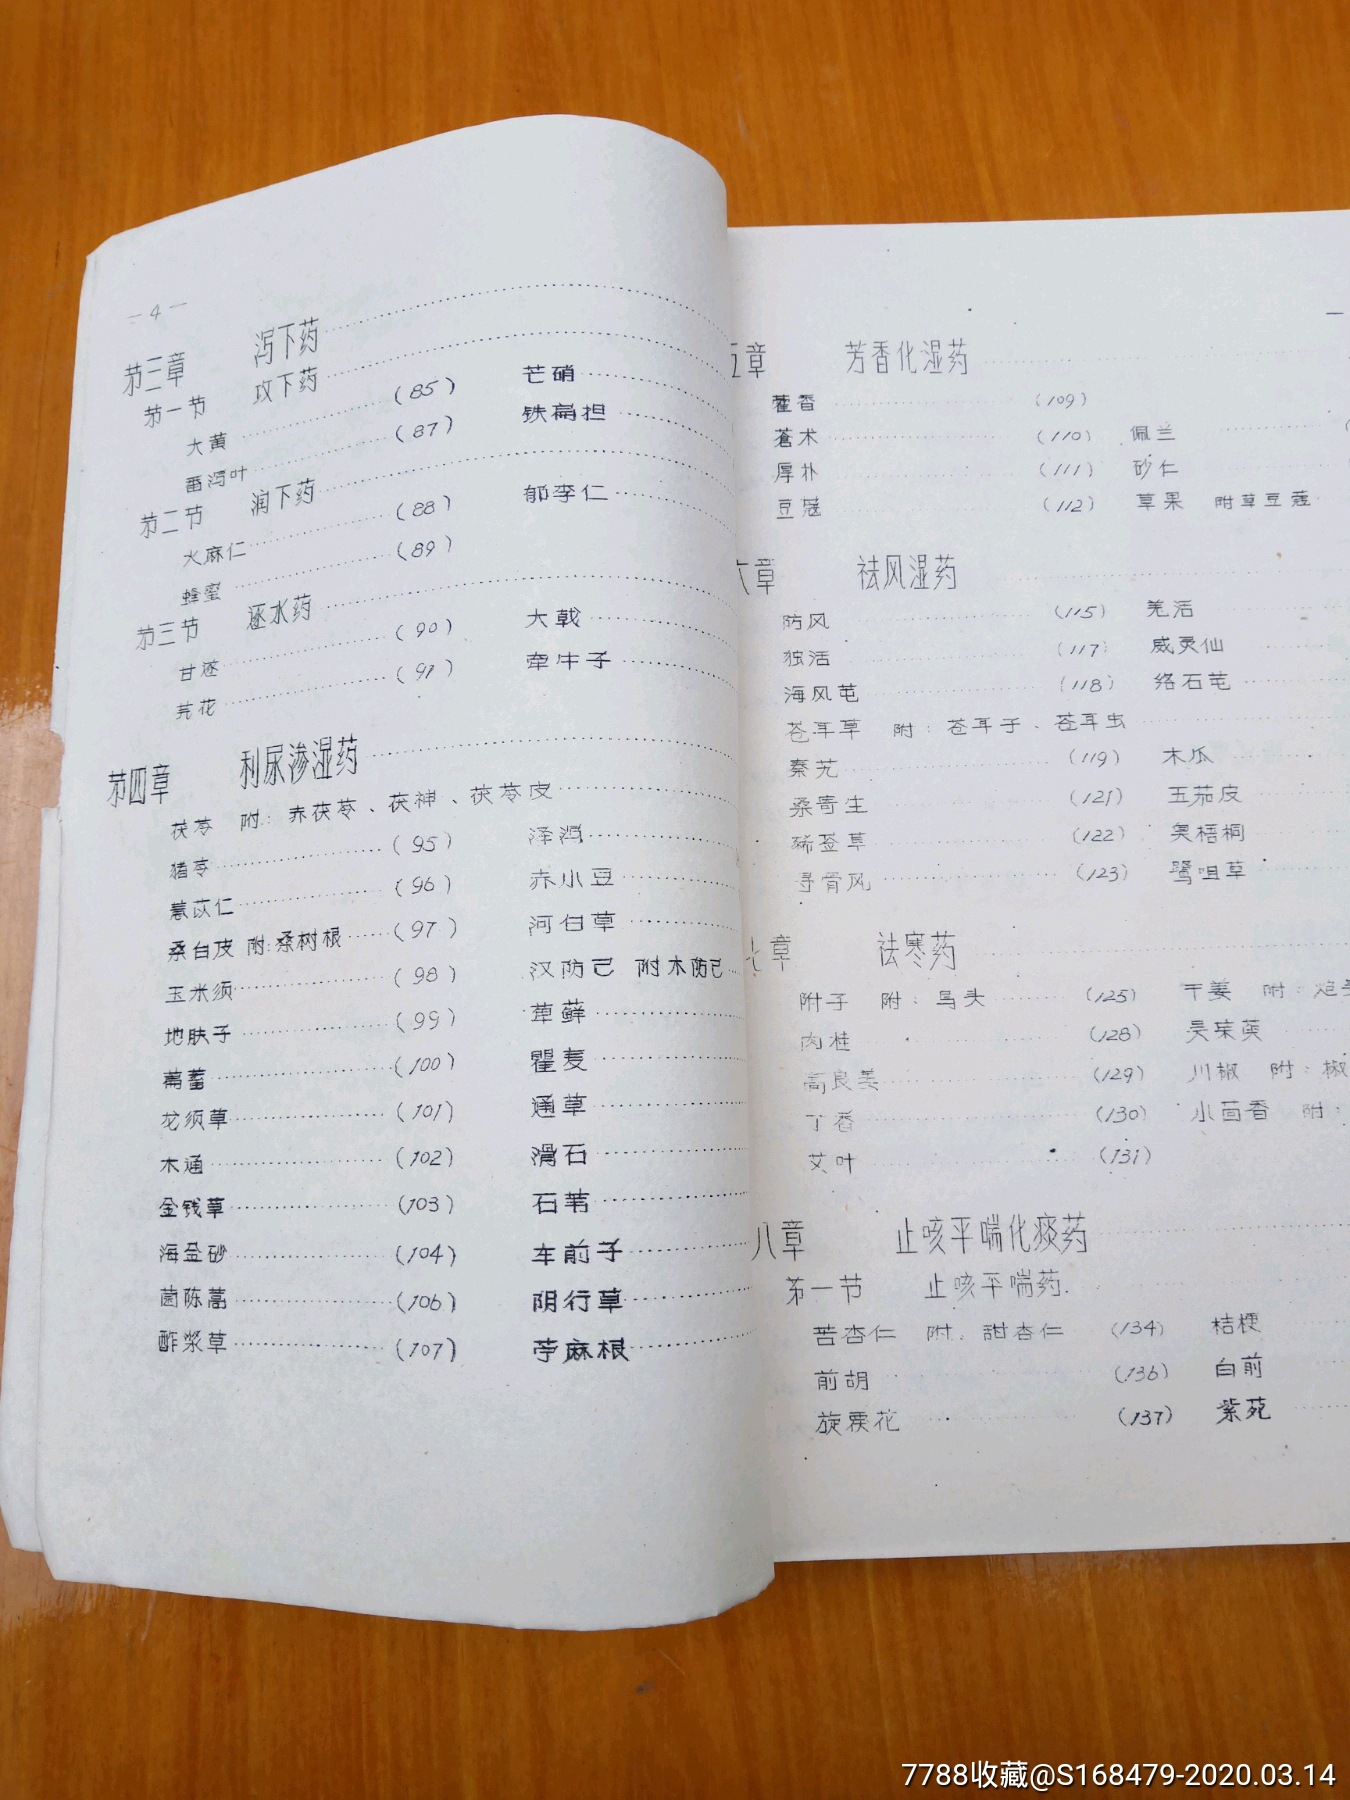 —4—
第三章 泻下药
第一节 攻下药
大黄 (85) 芒硝
番泻叶 (87) 铁扁担
第二节 润下药
火麻仁 (88) 郁李仁
蜂蜜 (89)
第三节 逐水药
甘遂 (90) 大戟
芫花 (91) 牵牛子
第四章 利尿渗湿药
茯苓 附:赤茯苓、茯神、茯苓皮
猪苓 (95) 泽泻
薏苡仁 (96) 赤小豆
桑白皮 附:桑树根 (97) 河白草
玉米须 (98) 汉防己 附木防己
地肤子 (99) 萆薢
萹蓄 (100) 瞿麦
龙须草 (101) 通草
木通 (102) 滑石
金钱草 (103) 石苇
海金砂 (104) 车前子
茵陈蒿 (106) 阴行草
酢浆草 (107) 苧麻根
五章 芳香化湿药
藿香 (109)
蒼术 (110) 佩兰
厚朴 (111) 砂仁
豆蔻 (112) 草果 附草豆蔻
六章 祛风湿药
防风 (115) 羌活
独活 (117) 威灵仙
海风芚 (118) 络石芚
苍耳草 附:苍耳子、苍耳虫
秦艽 (119) 木瓜
桑寄生 (121) 五茄皮
豨莶草 (122) 臭梧桐
寻骨风 (123) 鹭咀草
七章 祛寒药
附子 附:乌头 (125) 干姜 附:炮姜
肉桂 (128) 吴茱萸
高良姜 (129) 川椒 附:椒
丁香 (130) 小茴香 附:
艾叶 (131)
八章 止咳平喘化痰药
第一节 止咳平喘药
苦杏仁 附:甜杏仁 (134) 桔梗
前胡 (136) 白前
旋覆花 (137) 紫苑
7788收藏@S168479-2020.03.14